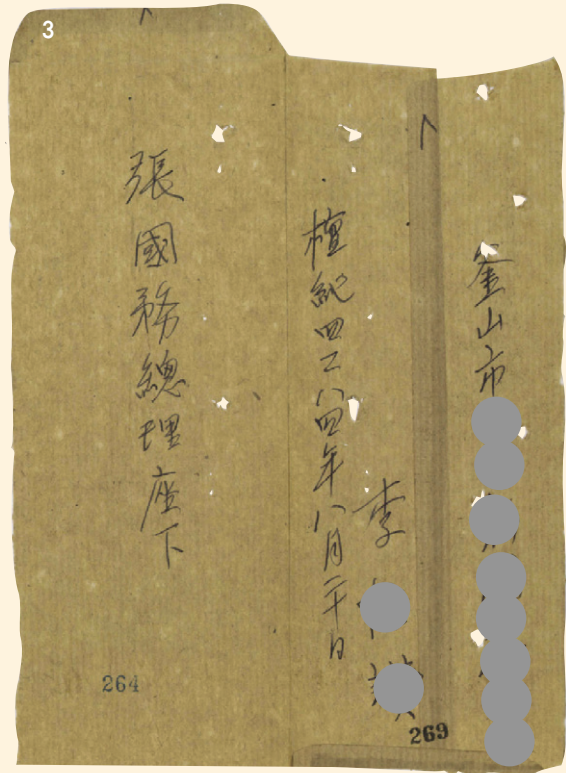 3
釜山市
李
檀紀四二八四年八月二十日
張國務總理座下
264
269